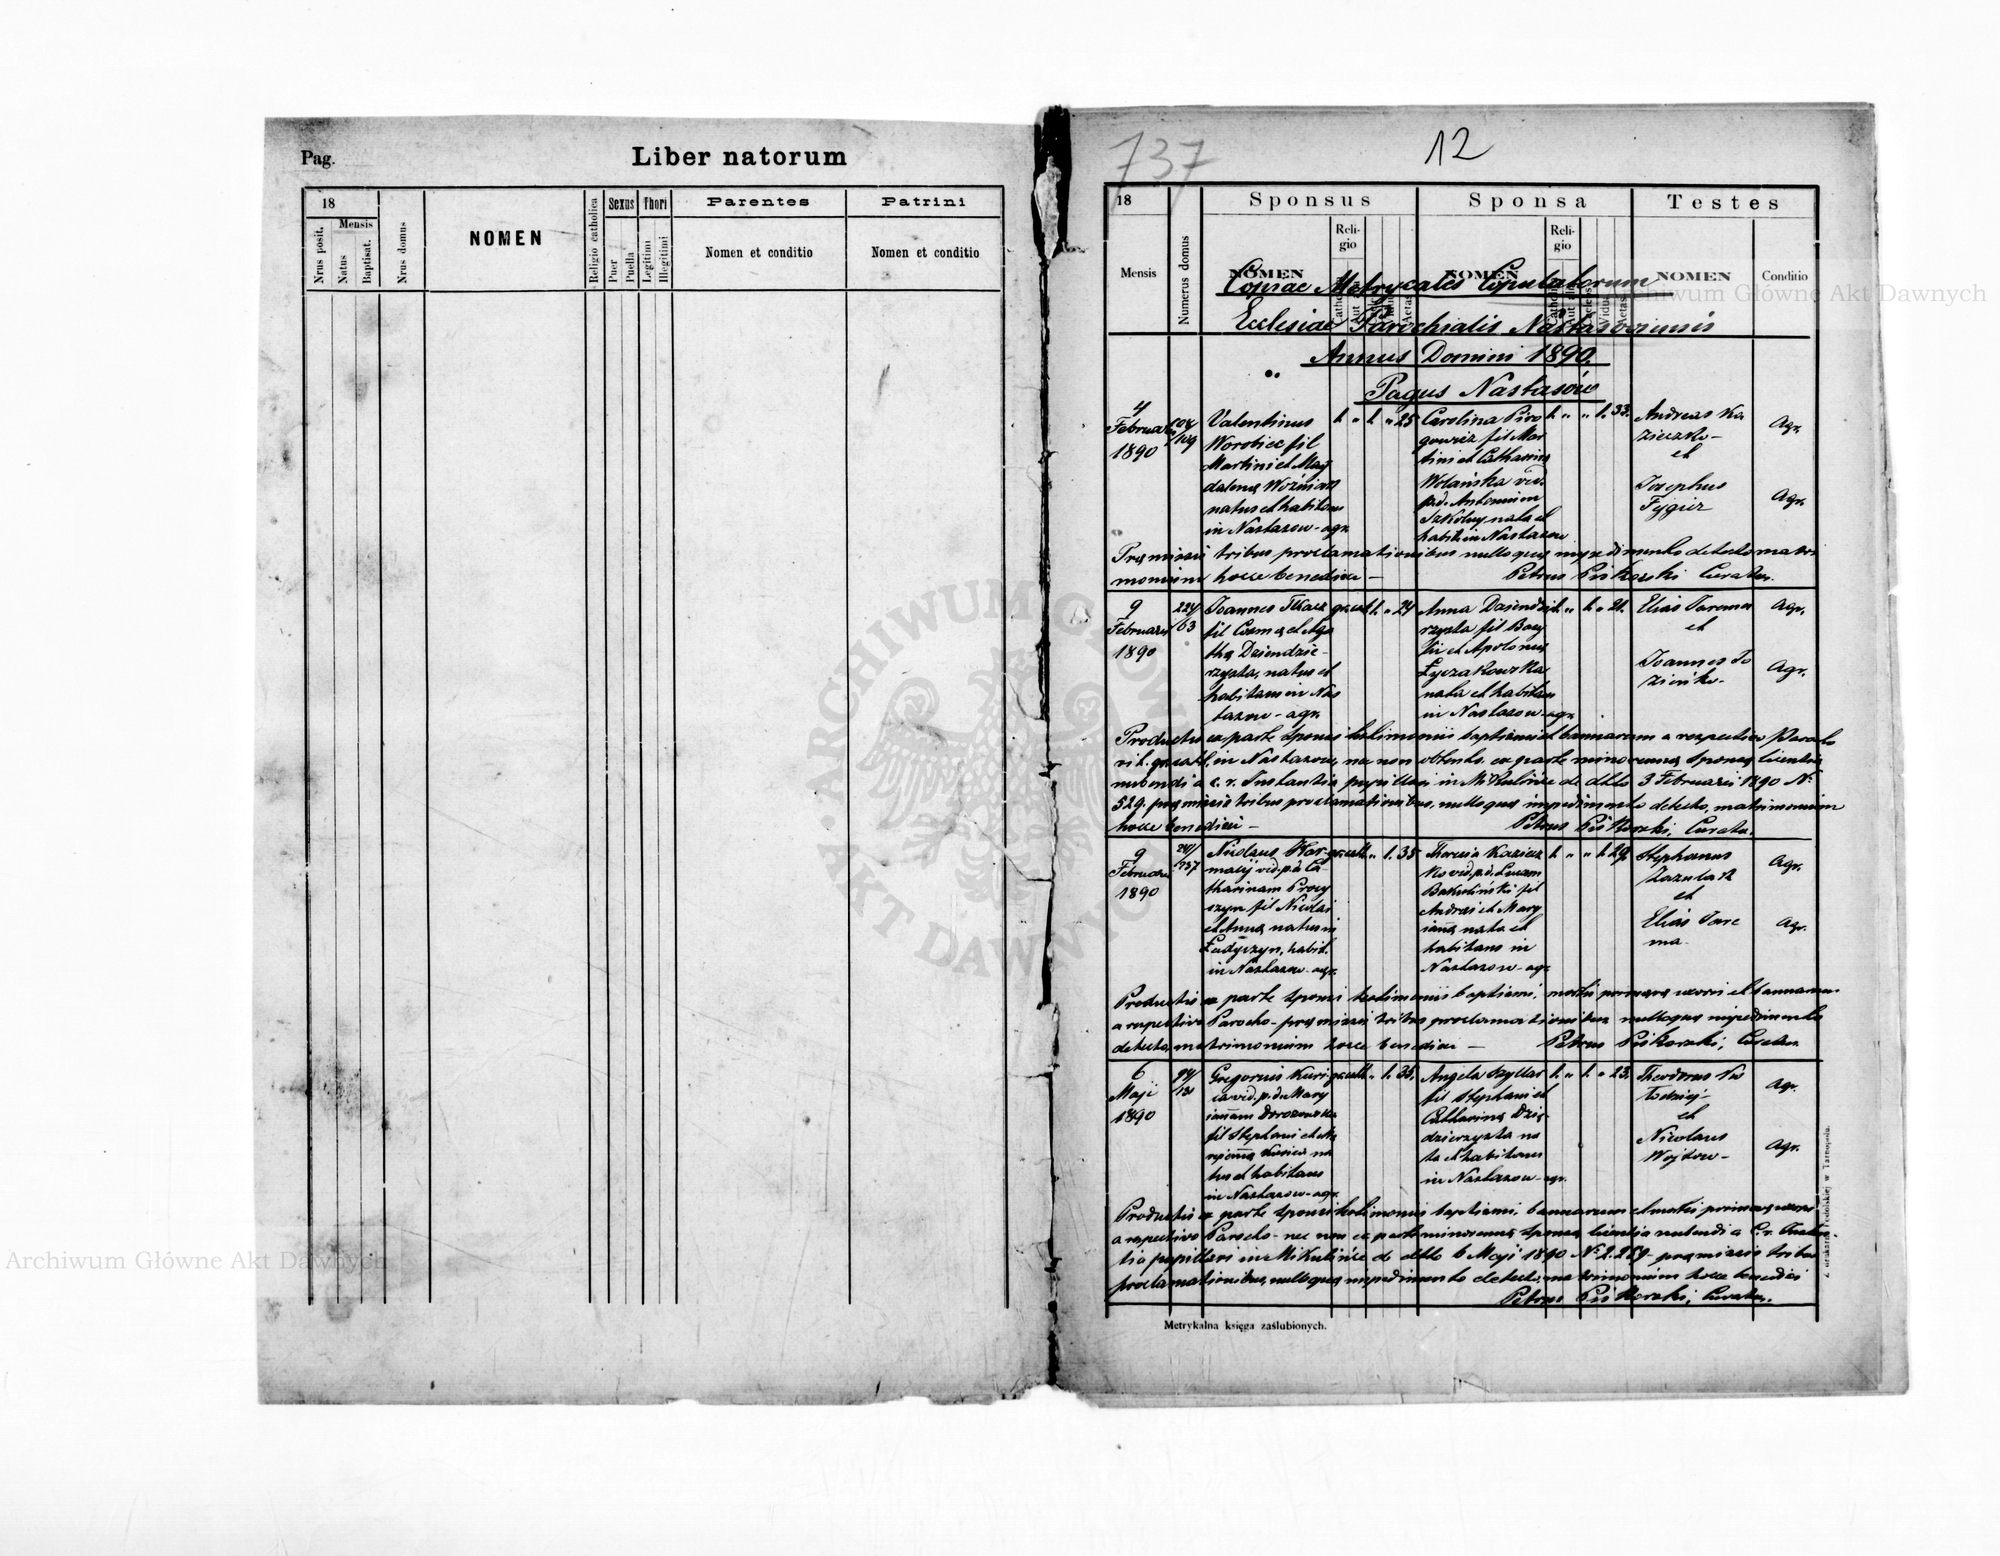 Pag.
Liber natorum
18
Mensis
Nrus posit.
Natus
Baptisat.
Nrus domus
NOMEN
Religio catholica
Sexus
Puer
Puella
Thori
Legitimi
Illegitimi
Parentes
Nomen et conditio
Patrini
Nomen et conditio
737
12
18
Mensis
Numerus domus
Sponsus
NOMEN
Reli-
gio
Aetas
Sponsa
NOMEN
Reli-
gio
Aetas
Testes
NOMEN
Conditio
Copiae Metrycales Copulatorum
Ecclesiae Parochialis Nastasoviensis
Annus Domini 1890.
Pagus Nastasów
4
Februarii
1890
Valentinus
Worobiec fil
Martini et Mag
dalenę Woźniak
natus et habitans
in Nastasow - agr.
25
Carolina Piro
gowicz fil Mar
tini et Catharinę
Wolańska vid.
p.d. Antonium
Szkolny nata et
habit. in Nastasow
33.
Andreas Ko
zieczko -
et
Josephus
Agr.
Agr.
Pręmissis tribus proclamationibus nulloque impedimento detecto matri
monium hocce benedixi -
Petrus Piskorski Curatus.
9
Februarii
1890
224/
63
Joannes Tkacz
fil Cosmę et Aga
thę Dziendzie-
rzysta, natus et
habitans in Nas
tasow - agr.
gr. cath.
24
Anna Dziendzie
rzysta fil Basy
lii et Apolonię
Łyczakowska
nata et habitans
in Nastasow - agr.
21.
Elias Jarema
et
Joannes
Agr.
Agr.
Productis ex parte sponsi testimonii baptismi et bannarum a respectivo Parocho
rit. gr. cath. in Nastasow, nec non obtenta ex parte minorennę sponsę licentia
nubendi a c. r. Instantia pupillari in Mikulińce de dtto 3 Februarii 1890 N:
529. pręmissis tribus proclamationibus, nulloque impedimento detecto, matrimonium
hocce benedixi -
Petrus Piskorski, Curatus.
9
Februarii
1890
Nicolaus Har-
matij vid. p.d. Ca
tharinam Procy
szyn fil Nicolai
et Annę natus in
Ładyczyn, habit.
in Nastasow - agr.
gr. cath.
35
Theresia Koziecz
ko vid. p.d. Lucam
Bakuliński fil
Andreę et Mary
iannę nata et
habitans in
Nastasow - agr.
29.
Stephanus
Zazulak
et
Elias Jare
ma
Agr.
Agr.
Productis ex parte sponsi testimonii baptismi, mortis primęvę uxoris et bannarum
a respectivo Parocho - pręmissis tribus proclamationibus nulloque impedimento
detecto, matrimonium hocce benedixi -
Petrus Piskorski, Curatus.
6
Maji
1890
94/
Gregorius Kuri
vid. p.d. Mary
iannam Dorozowska
fil Stephani et Ma
ryiannę
tus et habitans
in Nastasow - agr.
gr. cath.
35.
Angela Szyllar
fil Stephani et
Catharinę Dzię
dzierzysta na
ta et habitans
in Nastasow - agr.
23.
Theodorus
et
Nicolaus
Wojtów -
Agr.
Agr.
Productis ex parte sponsi testimoniis baptismi, bannarum et mortis primęvę uxoris
a respectivo Parocho - nec non ex parte minorennę sponsę licentia nubendi a C. r. Instan-
tia pupillari in Mikulińce de dtto 6 Maji 1890 N: 2.259 - pręmissis tribus
proclamationibus, nulloque impedimento detecto, matrimonium hocce benedixi
Petrus Piskorski, Curatus.
Metrykalna księga zaślubionych.
Archiwum Główne Akt Dawnych
Archiwum Główne Akt Dawnych
ARCHIWUM GŁÓWNE AKT DAWNYCH